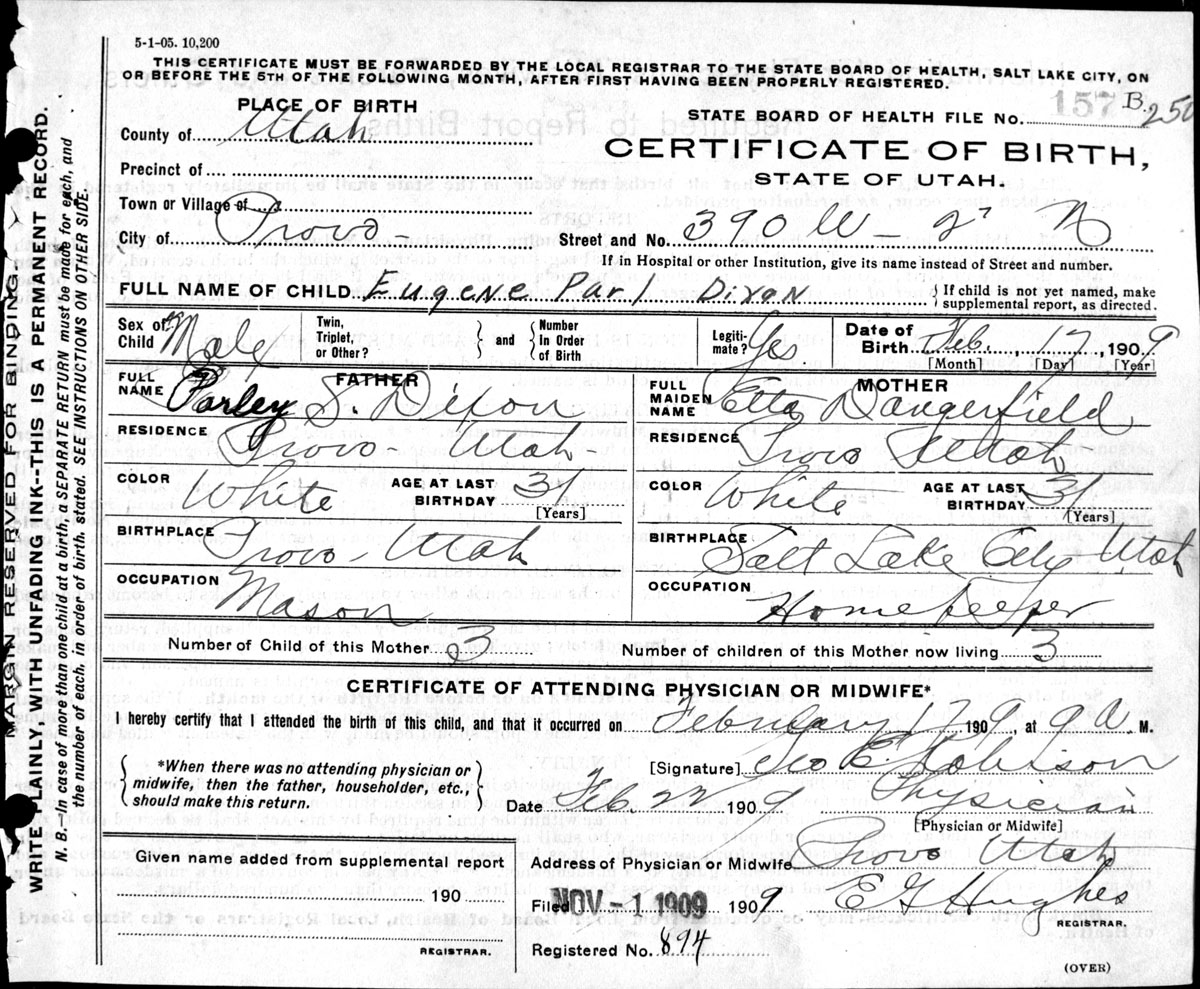 5-1-05. 10,200
THIS CERTIFICATE MUST BE FORWARDED BY THE LOCAL REGISTRAR TO THE STATE BOARD OF HEALTH, SALT LAKE CITY, ON
OR BEFORE THE 5TH OF THE FOLLOWING MONTH, AFTER FIRST HAVING BEEN PROPERLY REGISTERED.
PLACE OF BIRTH
County of Utah
STATE BOARD OF HEALTH FILE No. 157 B. 250
CERTIFICATE OF BIRTH,
STATE OF UTAH.
Precinct of
Town or Village of
City of Provo
Street and No. 390 W - 2 N
If in Hospital or other Institution, give its name instead of Street and number.
FULL NAME OF CHILD Eugene Parl Dixon { If child is not yet named, make supplemental report, as directed.
Sex of Child Male
Twin, Triplet, or Other? } and { Number In Order of Birth
Legitimate? Yes
Date of Birth Feb. 17, 1909
[Month] [Day] [Year]
FATHER
FULL NAME Parley S. Dixon
RESIDENCE Provo Utah
COLOR White AGE AT LAST BIRTHDAY 31
[Years]
BIRTHPLACE Provo Utah
OCCUPATION Mason
MOTHER
FULL MAIDEN NAME Etta Dangerfield
RESIDENCE Provo Utah
COLOR White AGE AT LAST BIRTHDAY 31
[Years]
BIRTHPLACE Salt Lake City Utah
OCCUPATION Homekeeper
Number of Child of this Mother 3 Number of children of this Mother now living 3
CERTIFICATE OF ATTENDING PHYSICIAN OR MIDWIFE*
I hereby certify that I attended the birth of this child, and that it occurred on February 17 1909, at 9 a M.
{ *When there was no attending physician or midwife, then the father, householder, etc., should make this return. }
[Signature] Geo E. Robison
Date Feb 22 1909 Physician
[Physician or Midwife]
Given name added from supplemental report
190
REGISTRAR.
Address of Physician or Midwife Provo Utah
Filed NOV - 1 1909 1909 E G Hughes
REGISTRAR.
Registered No. 894
(OVER)
MARGIN RESERVED FOR BINDING
WRITE PLAINLY, WITH UNFADING INK--THIS IS A PERMANENT RECORD.
N. B.-In case of more than one child at a birth, a SEPARATE RETURN must be made for each, and
the number of each, in order of birth, stated. SEE INSTRUCTIONS ON OTHER SIDE